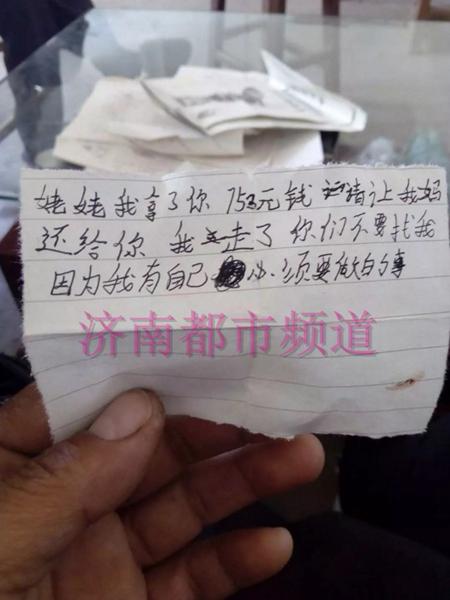 姥姥我拿了你753元钱请让我妈
还给你 我走了 你们不要找我
因为我有自己必须要做的事
济南都市频道